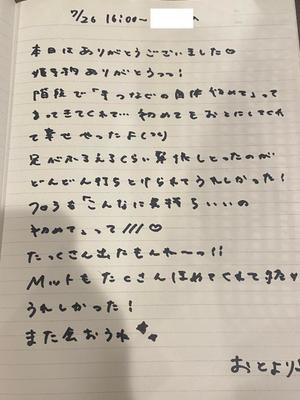 7/26 16:00~ へ
本日はありがとうございました♡
指名予約ありがとうっっ!
階段で「手つなぐの自体初めて」って
言ってきてくれて…初めてをおとにしてくれ
て幸せやったよ(ツ)
足がふるえるくらい緊張しとったのが
どんどん打ちとけられてうれしかった!
フロうも「こんなに気持ちいいの
初めて」って///♡
たっくさん出たもんね〜っ!!
Mットもたくさんほめてくれてまた
うれしかった!
また会おうね
おとより